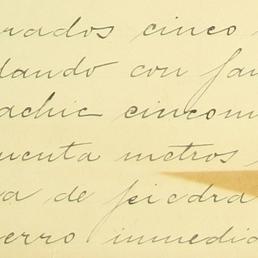 rados cinco
dando con
achic cincomi
cuenta metros
va de piedra
erro inmedia